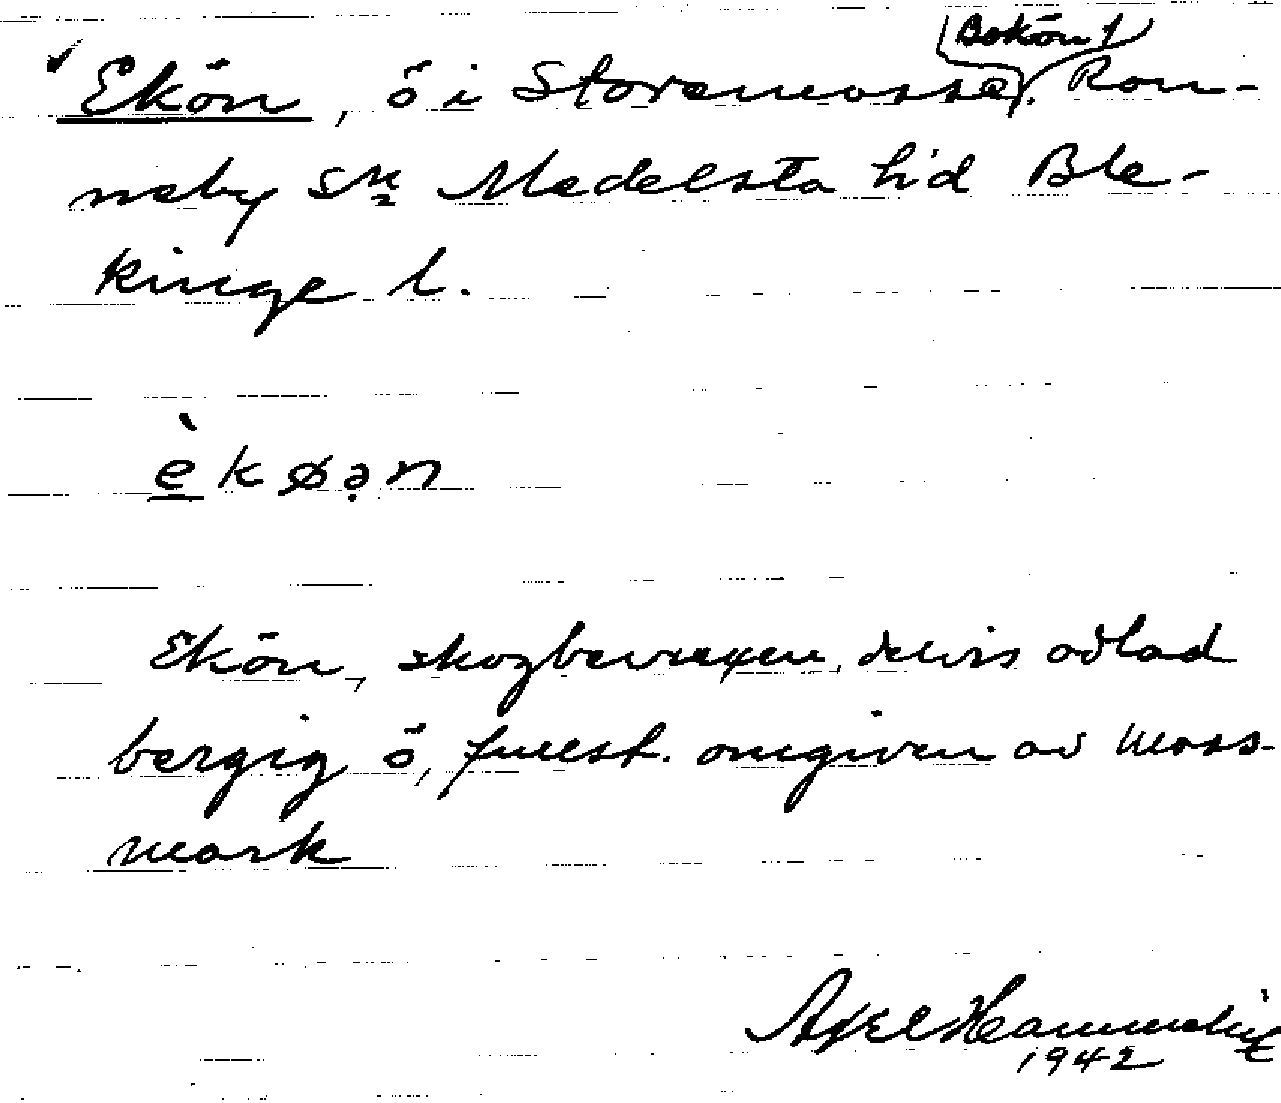 Bokön 1
Ekön, ö i Storemosse, Ron-
neby sn Medelsta hd Ble-
kinge l.
èkøən
Ekön, skogbevuxen, delvis odlad
bergig ö, fullst. omgiven av moss-
mark
Axel
1942